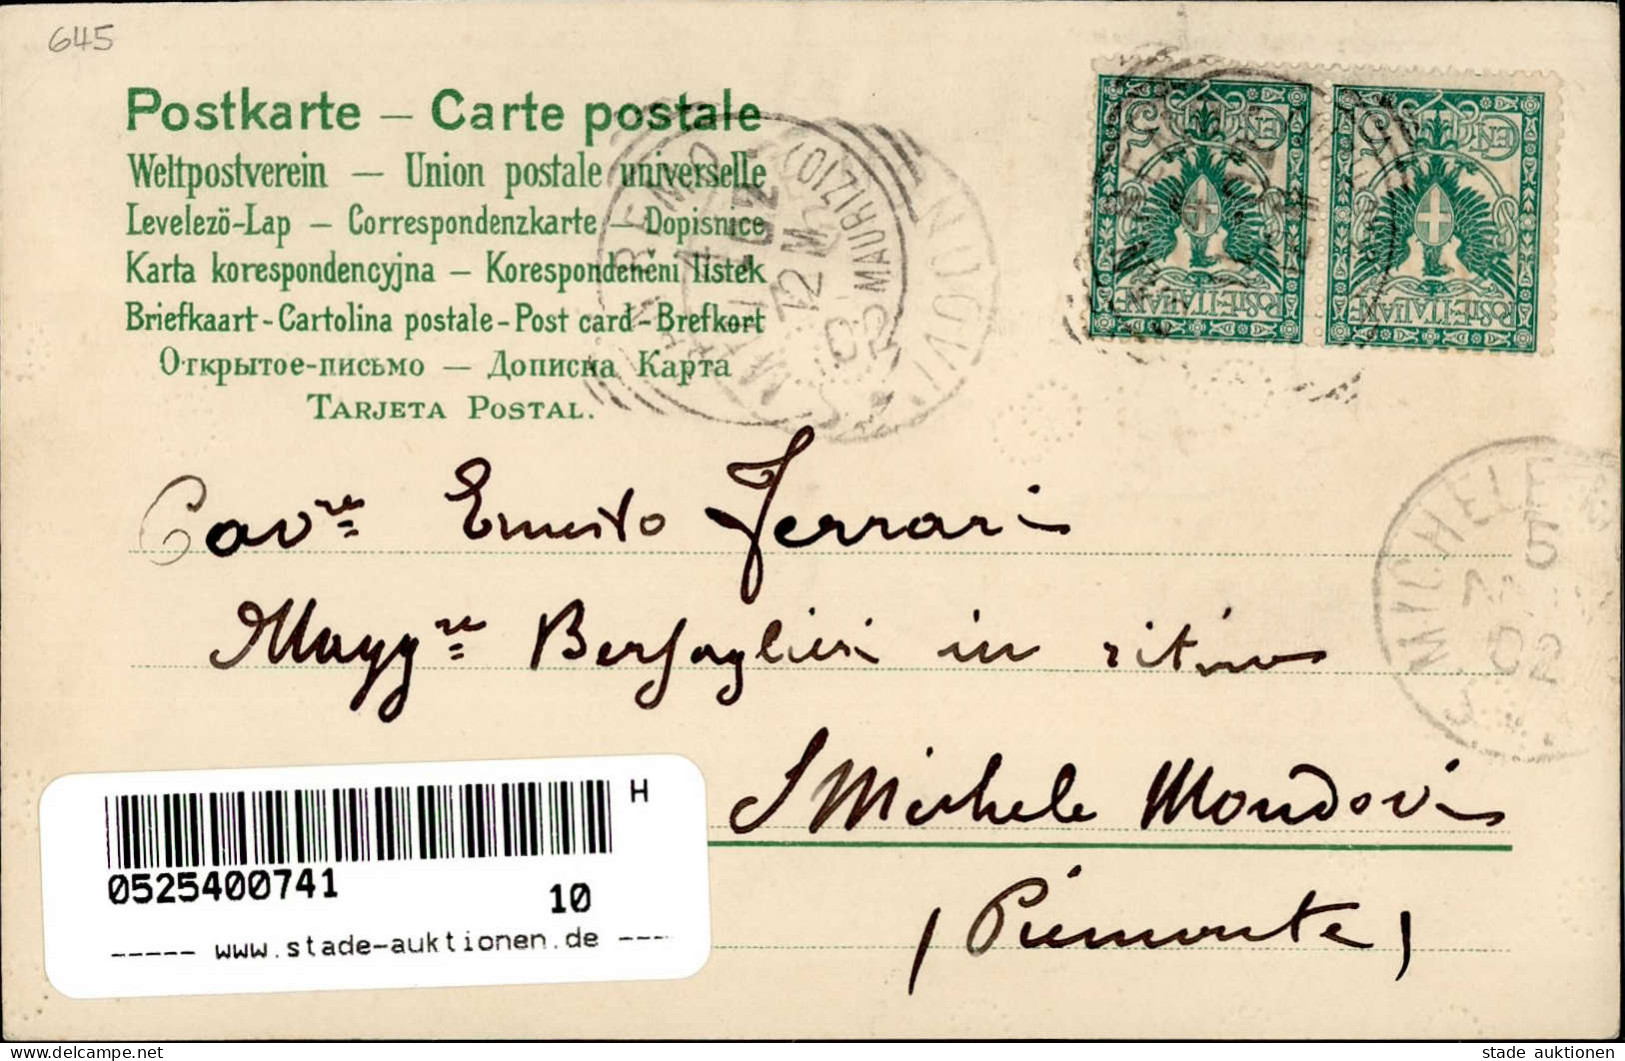 645
Postkarte — Carte postale
Weltpostverein — Union postale universelle
Levelezö-Lap — Correspondenzkarte — Dopisnice
Karta korespondencyjna — Korespondenčni listek
Briefkaart - Cartolina postale - Post card - Brefkort
Открытое-письмо — Дописна Карта
TARJETA POSTAL.
5 CEN
5 CEN
POSTE·ITALIANE
POSTE·ITALIANE
MAURIZIO)
12 M
02
Cavre Ernesto Ferrari
Maggre Bersaglieri in ritiro
S Michele Mondovi
(Piemonte)
MICHELE
5
02
H
0525400741
10
----- www.stade-auktionen.de ----
delcampe.net
stade auktionen